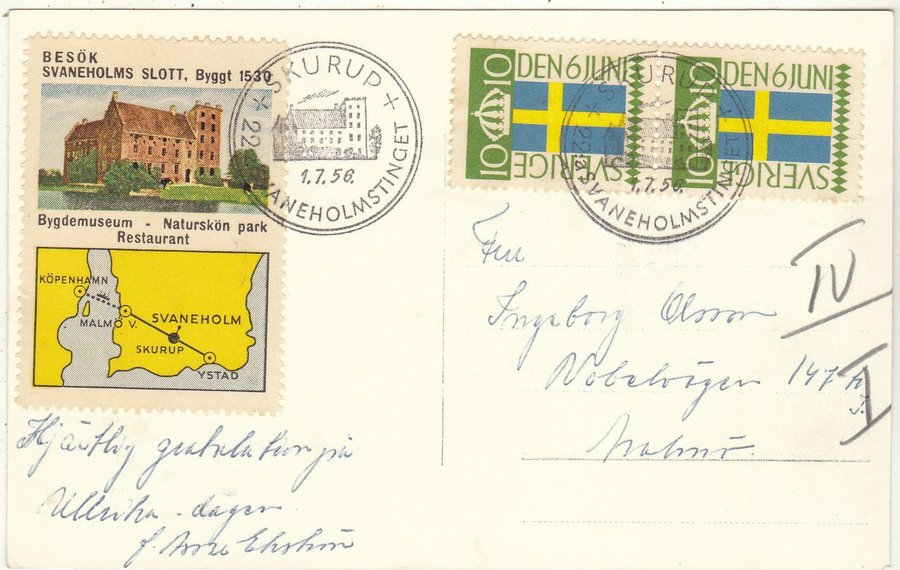 BESÖK
SVANEHOLMS SLOTT, Byggt 1530
Bygdemuseum - Naturskön park
Restaurant
KÖPENHAMN
MALMÖ V.
SVANEHOLM
SKURUP
YSTAD
SKURUP
22
1.7.56.
SVANEHOLMSTINGET
10 10
DEN 6 JUNI
SVERIGE
10 10
DEN 6 JUNI
SVERIGE
SKURUP
22
1.7.56.
SVANEHOLMSTINGET
Hjärtlig gratulation på
Ullrika-dagen
Fru
Ingeborg Olsson
Nobelvägen 147
Malmö.
IV
I